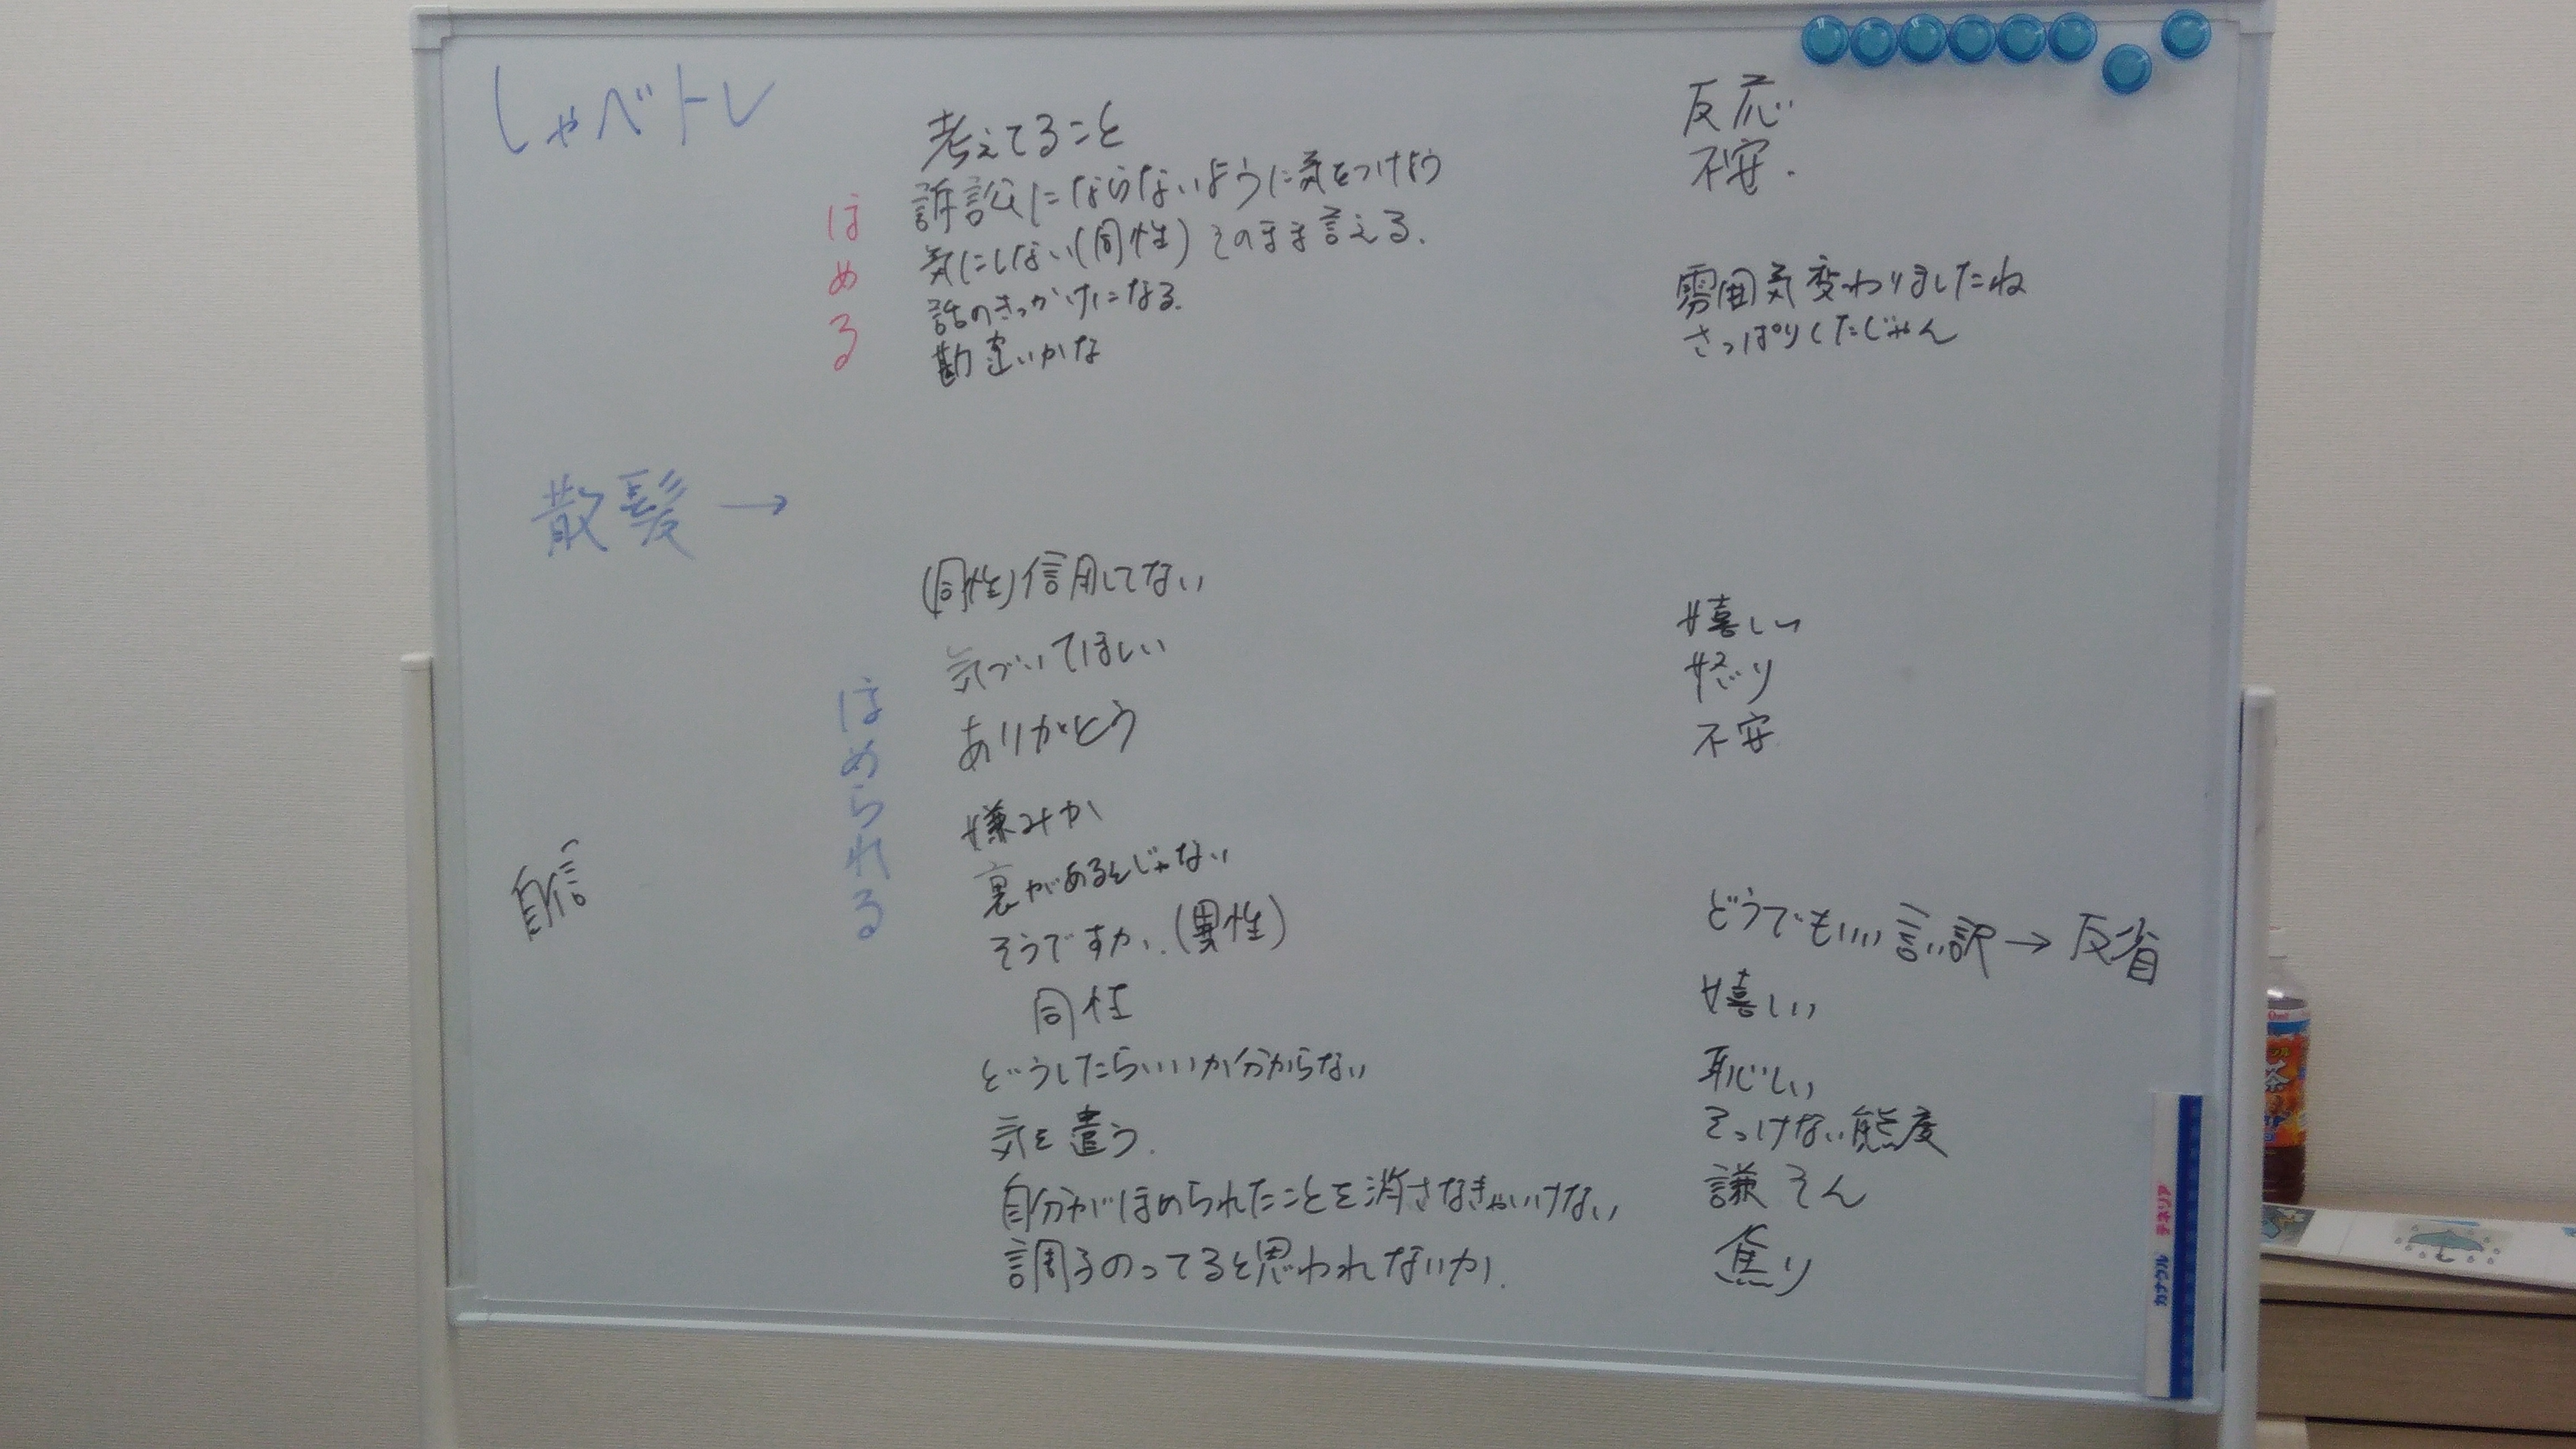 しゃべトレ
考えてること
反応
ほめる
訴訟にならないように気をつけよう
不安.
気にしない(同性) そのまま言える.
話のきっかけになる.
雰囲気変わりましたね
勘違いかな
さっぱりしたじゃん
散髪→
ほめられる
(同性)信用してない
嬉しい
気づいてほしい
怒り
ありがとう
不安
自信
嫌みか
裏があるんじゃない
そうですか.(異性)
どうでもいい言い訳→反省
同性
嬉しい
どうしたらいいか分からない
恥しい
気を遣う.
そっけない態度
自分がほめられたことを消さなきゃいけない
謙そん
調子のってると思われないか.
焦り
カナフル チネリア